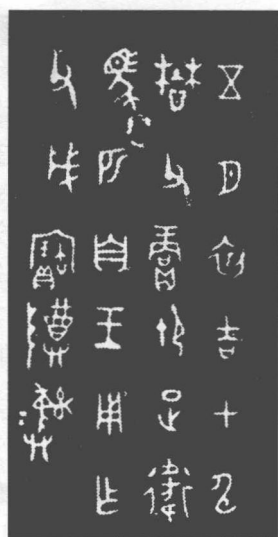 五月初吉甲申
懋父賞御正衛
馬匹自王用乍
父戊寶尊彝